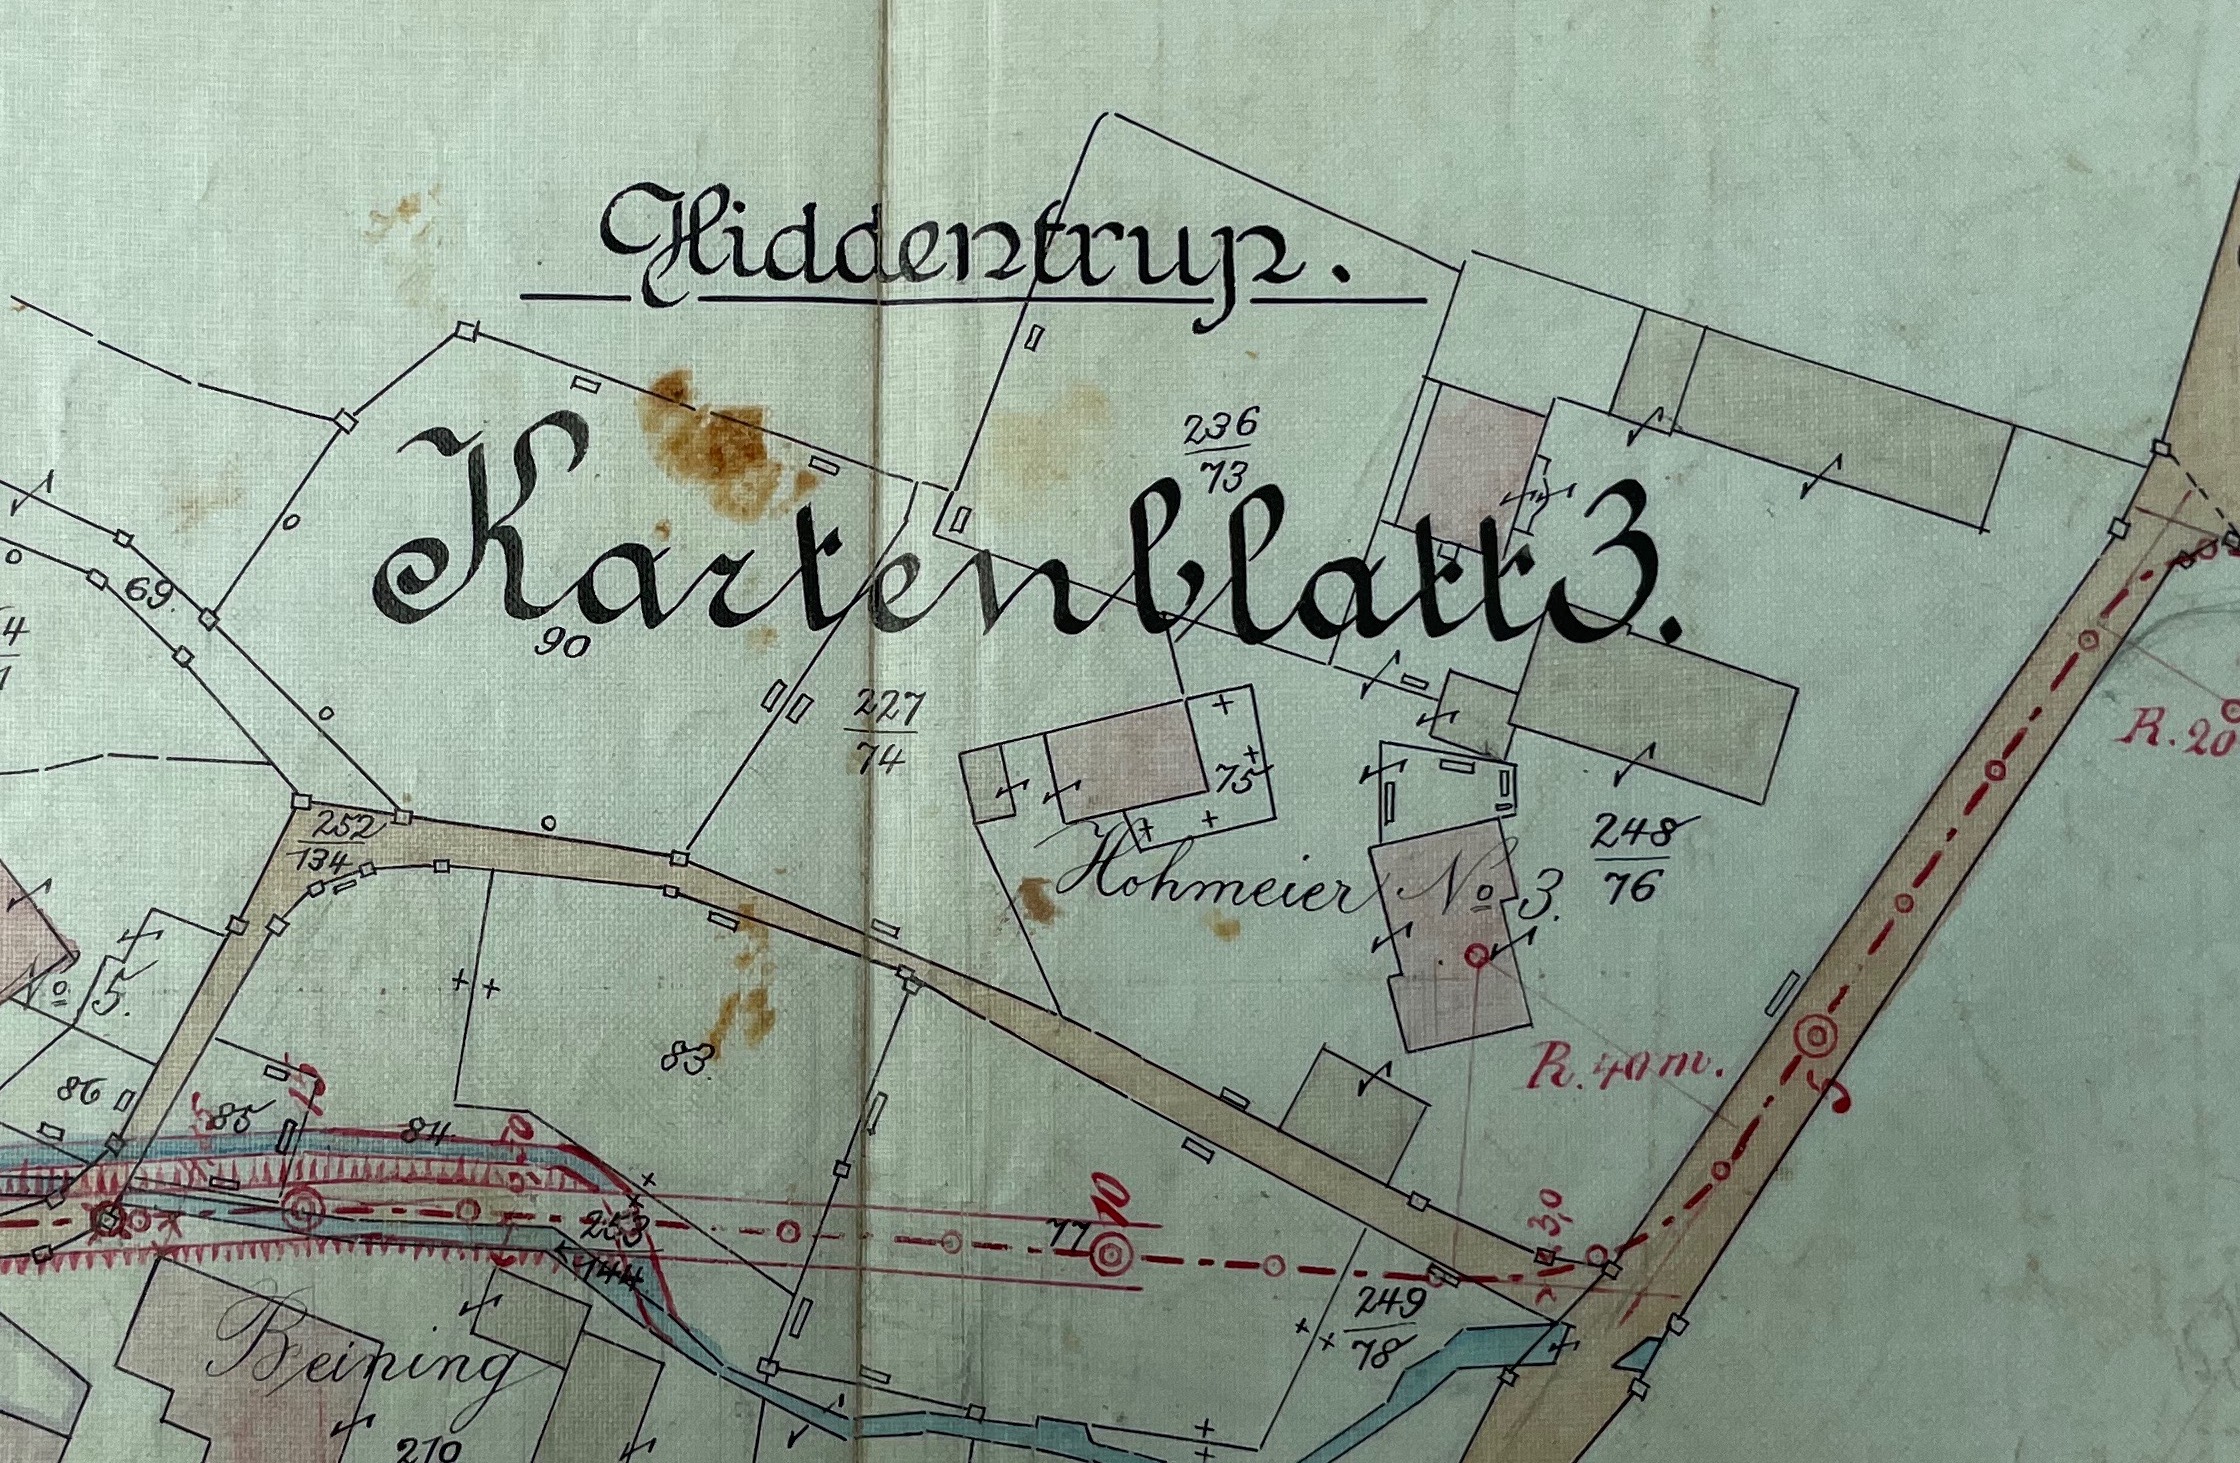 Hiddentrup.
236
73
Kartenblatt 3.
69.
90
227
74
75
R. 20
252
134
248
76
Hohmeier No 3.
No 5.
83.
R. 40 m.
86
85
84
10
5
3,0
253
144
77
249
78
Beining
210